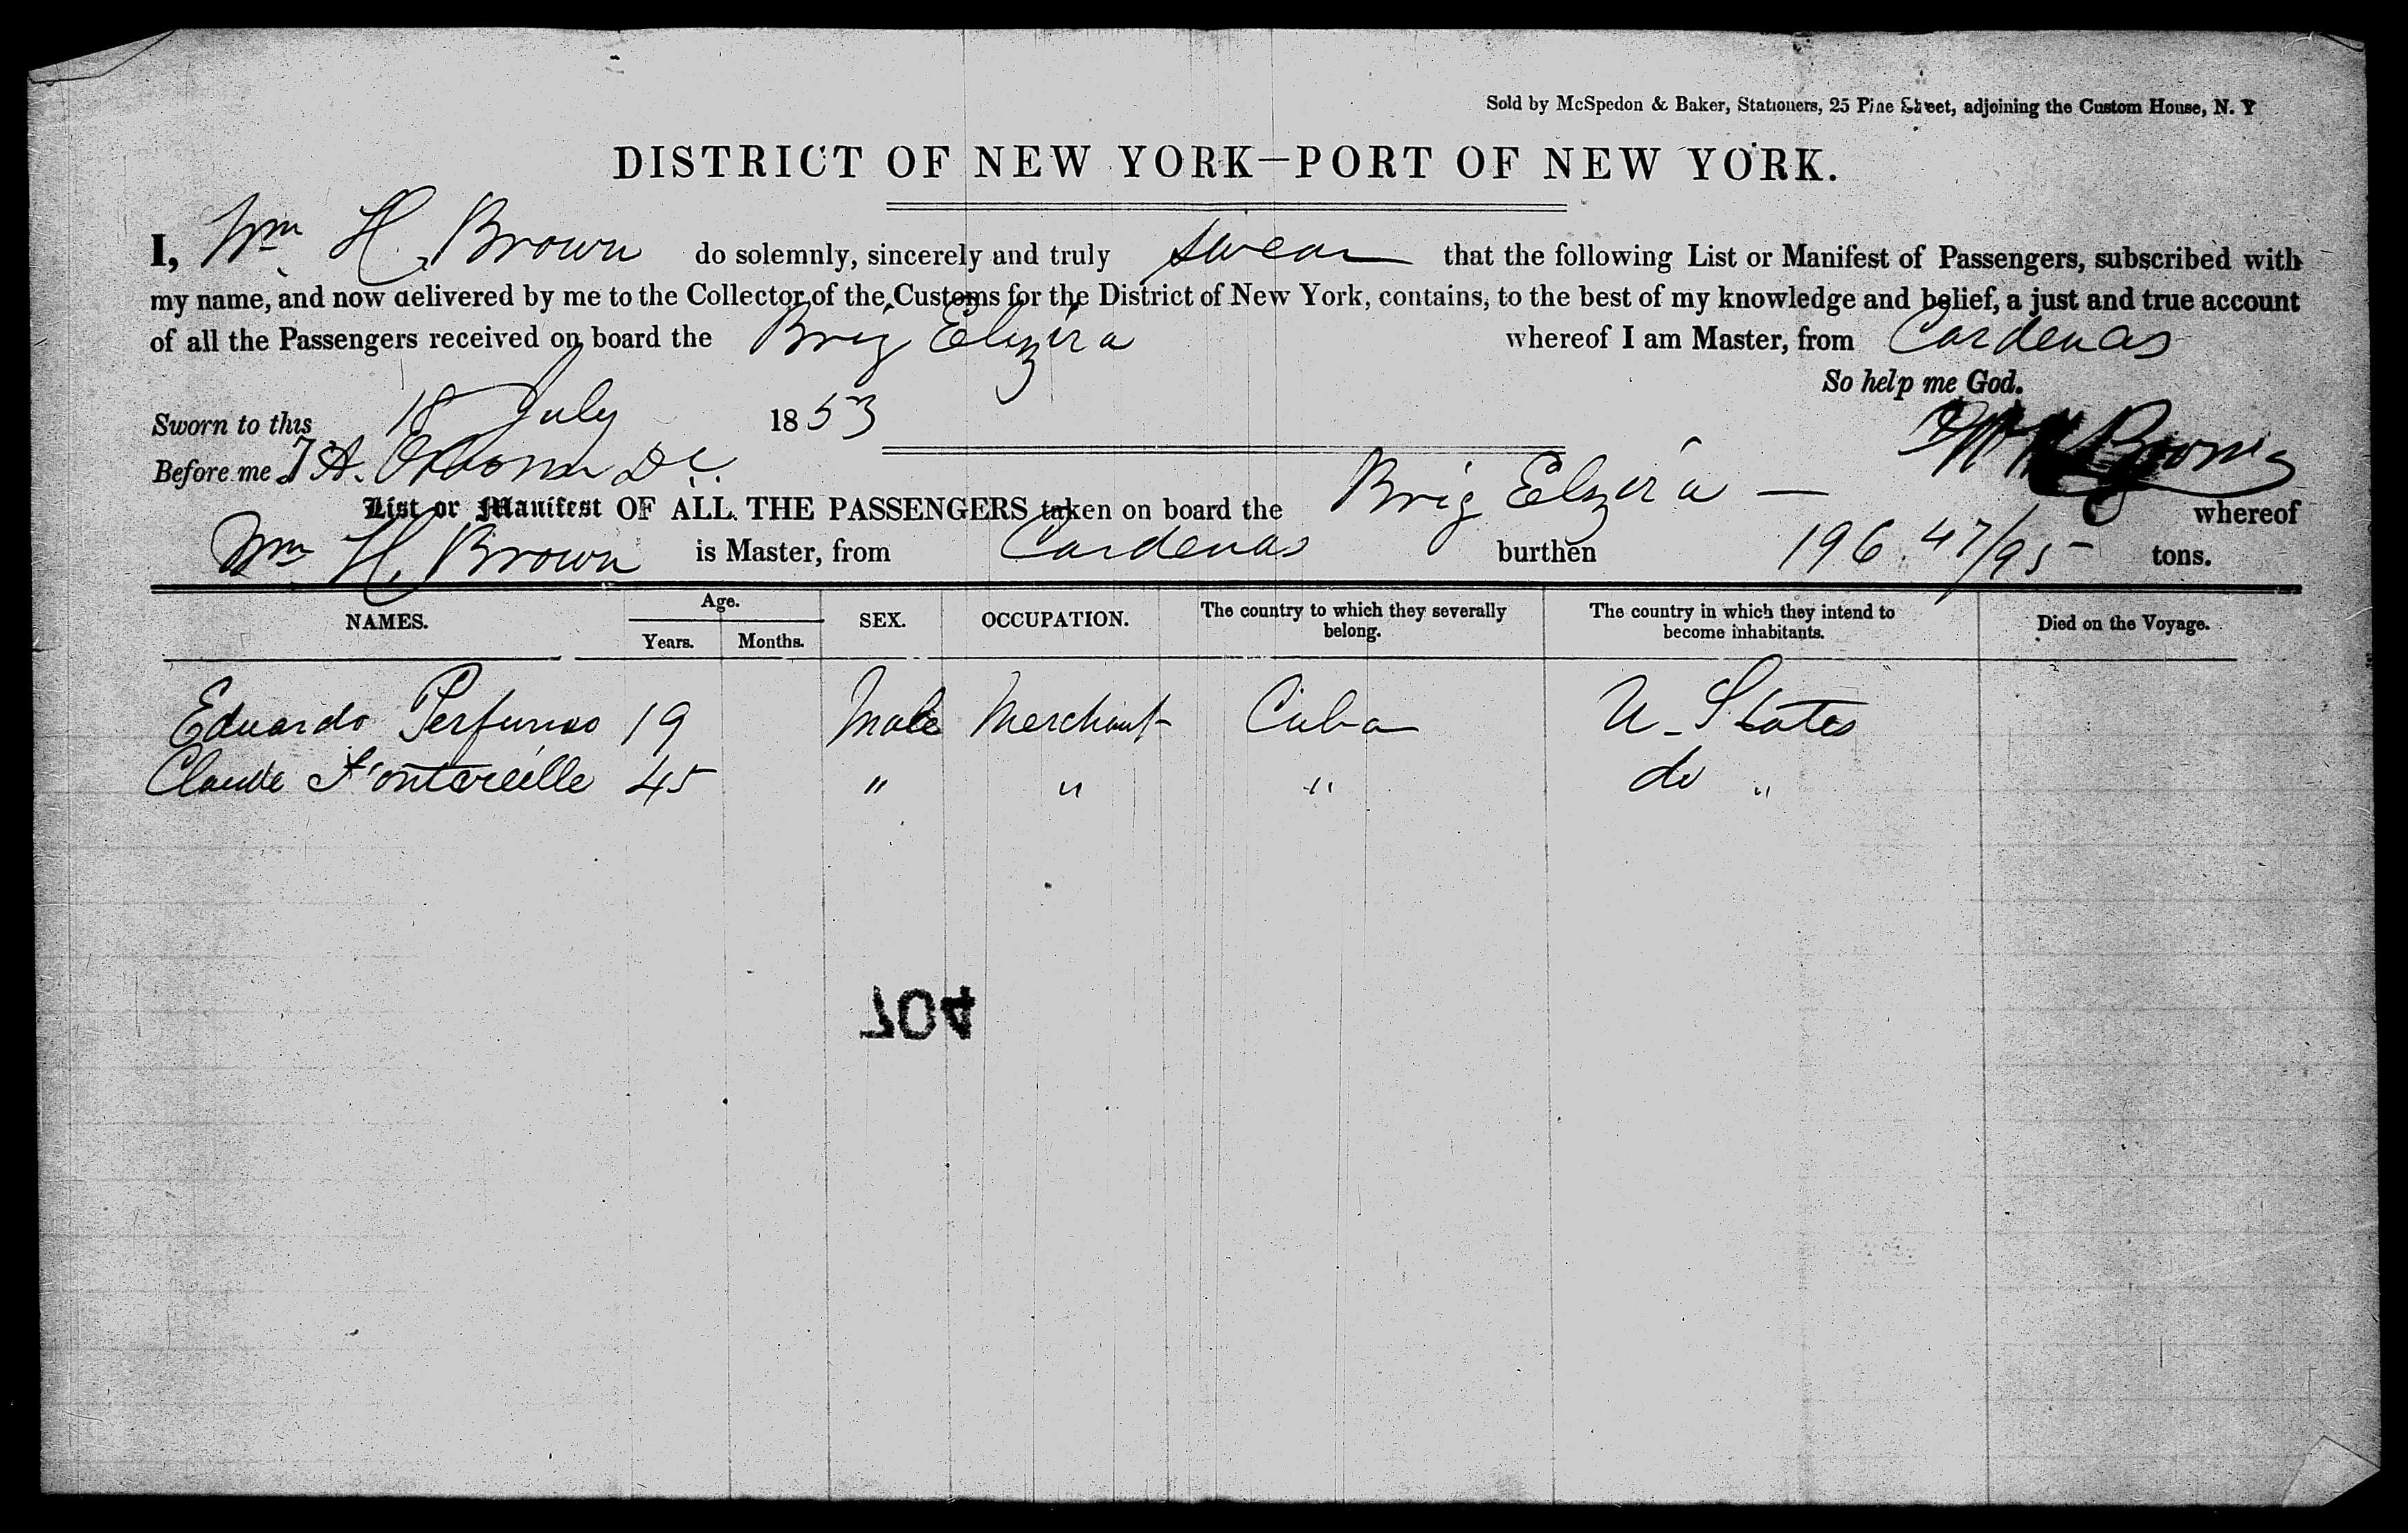 Sold by McSpedon & Baker, Stationers, 25 Pine Street, adjoining the Custom House, N. Y
DISTRICT OF NEW YORK—PORT OF NEW YORK.
I, Wm H. Brown do solemnly, sincerely and truly swear that the following List or Manifest of Passengers, subscribed with
my name, and now delivered by me to the Collector of the Customs for the District of New York, contains, to the best of my knowledge and belief, a just and true account
of all the Passengers received on board the Brig Elizira whereof I am Master, from Cardenas
So help me God.
Sworn to this 18 July 1853
Wm H Brown
Before me
List or Manifest OF ALL THE PASSENGERS taken on board the Brig Elzira — whereof
Wm H. Brown is Master, from Cardenas burthen 196.47/95 tons.
NAMES. Age. Years. Months. SEX. OCCUPATION. The country to which they severally belong. The country in which they intend to become inhabitants. Died on the Voyage.
Eduardo Perfumo 19 Male Merchant Cuba U-States
Claude 45 " " " do "
704